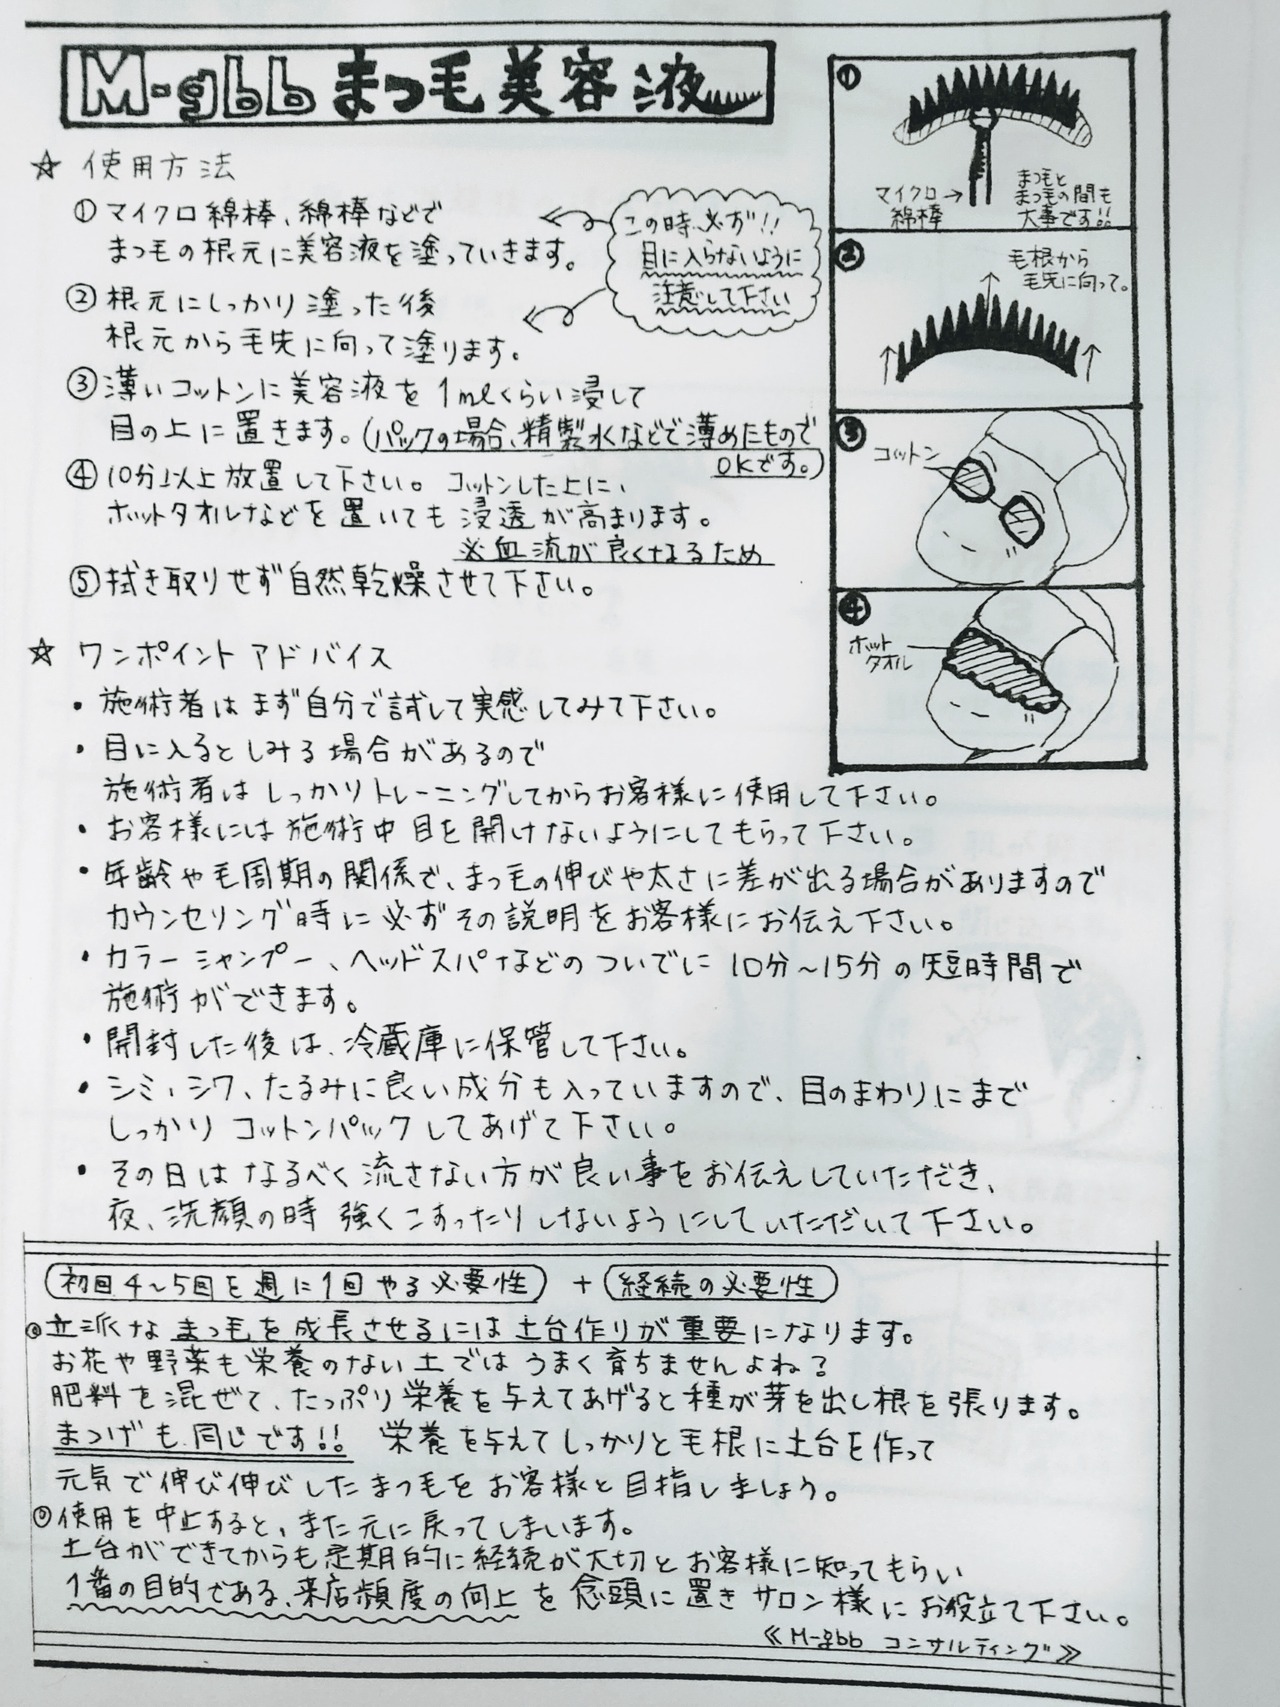 M-gbb まつ毛美容液
☆ 使用方法
① マイクロ綿棒、綿棒などで
まつ毛の根元に美容液を塗っていきます。
② 根元にしっかり塗った後
根元から毛先に向って塗ります。
この時、必ず!!
目に入らないように
注意して下さい
③ 薄いコットンに美容液を1mlくらい浸して
目の上に置きます。(パックの場合、精製水などで薄めたもので
OKです。)
④ 10分以上放置して下さい。コットンした上に、
ホットタオルなどを置いても浸透が高まります。
※血流が良くなるため
⑤ 拭き取りせず自然乾燥させて下さい。
①
マイクロ→
綿棒
まつ毛と
まつ毛の間も
大事です!!
②
毛根から
毛先に向って。
③
コットン
④
ホット
タオル
☆ ワンポイントアドバイス
・施術者はまず自分で試して実感してみて下さい。
・目に入るとしみる場合があるので
施術者はしっかりトレーニングしてからお客様に使用して下さい。
・お客様には施術中目を開けないようにしてもらって下さい。
・年齢や毛周期の関係で、まつ毛の伸びや太さに差が出る場合がありますので
カウンセリング時に必ずその説明をお客様にお伝え下さい。
・カラーシャンプー、ヘッドスパなどのついでに10分~15分の短時間で
施術ができます。
・開封した後は、冷蔵庫に保管して下さい。
・シミ、シワ、たるみに良い成分も入っていますので、目のまわりにまで
しっかりコットンパックしてあげて下さい。
・その日はなるべく流さない方が良い事をお伝えしていただき、
夜、洗顔の時強くこすったりしないようにしていただいて下さい。
初回4~5回を週に1回やる必要性 + 継続の必要性
◎立派なまつ毛を成長させるには土台作りが重要になります。
お花や野菜も栄養のない土ではうまく育ちませんよね?
肥料を混ぜて、たっぷり栄養を与えてあげると種が芽を出し根を張ります。
まつげも同じです!! 栄養を与えてしっかりと毛根に土台を作って
元気で伸び伸びしたまつ毛をお客様と目指しましょう。
◎使用を中止すると、また元に戻ってしまいます。
土台ができてからも定期的に継続が大切とお客様に知ってもらい
1番の目的である、来店頻度の向上を念頭に置きサロン様にお役立て下さい。
≪M-gbb コンサルティング≫